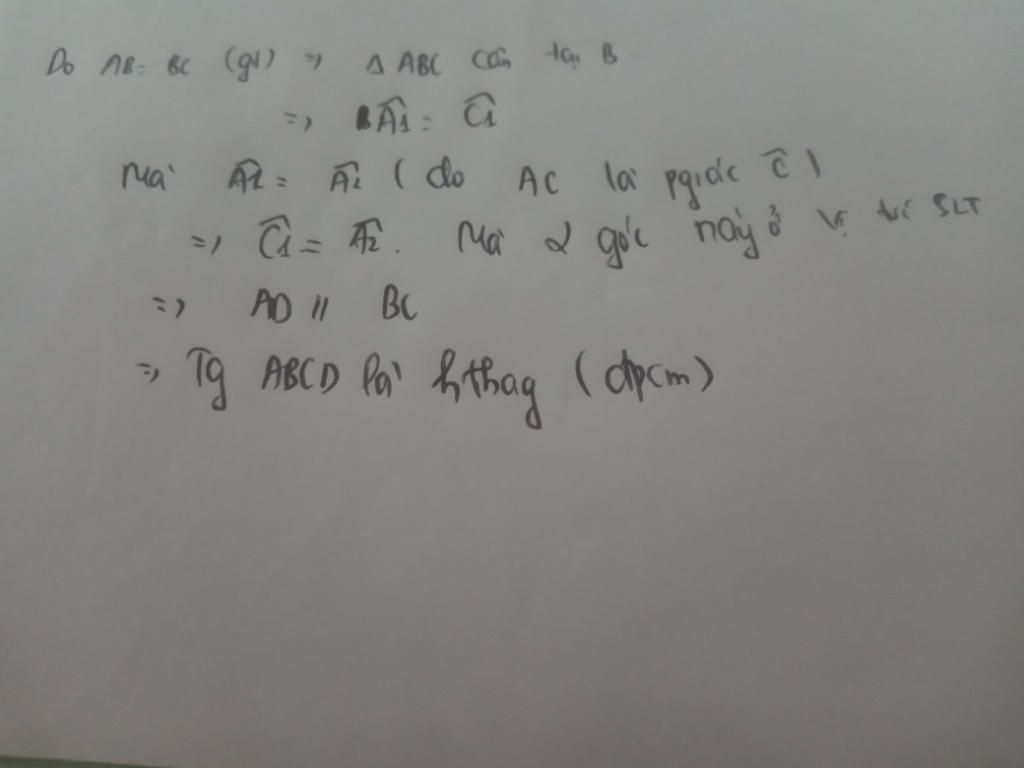 Do AB = BC (gt) => Δ ABC cân tại B
=> Â1 = Ĉ1
Mà Â1 = Â2 ( do AC là pgiác Ĉ )
=> Ĉ1 = Â2. Mà 2 góc này ở vị trí SLT
=> AD // BC
=> Tg ABCD là hthag (đpcm)